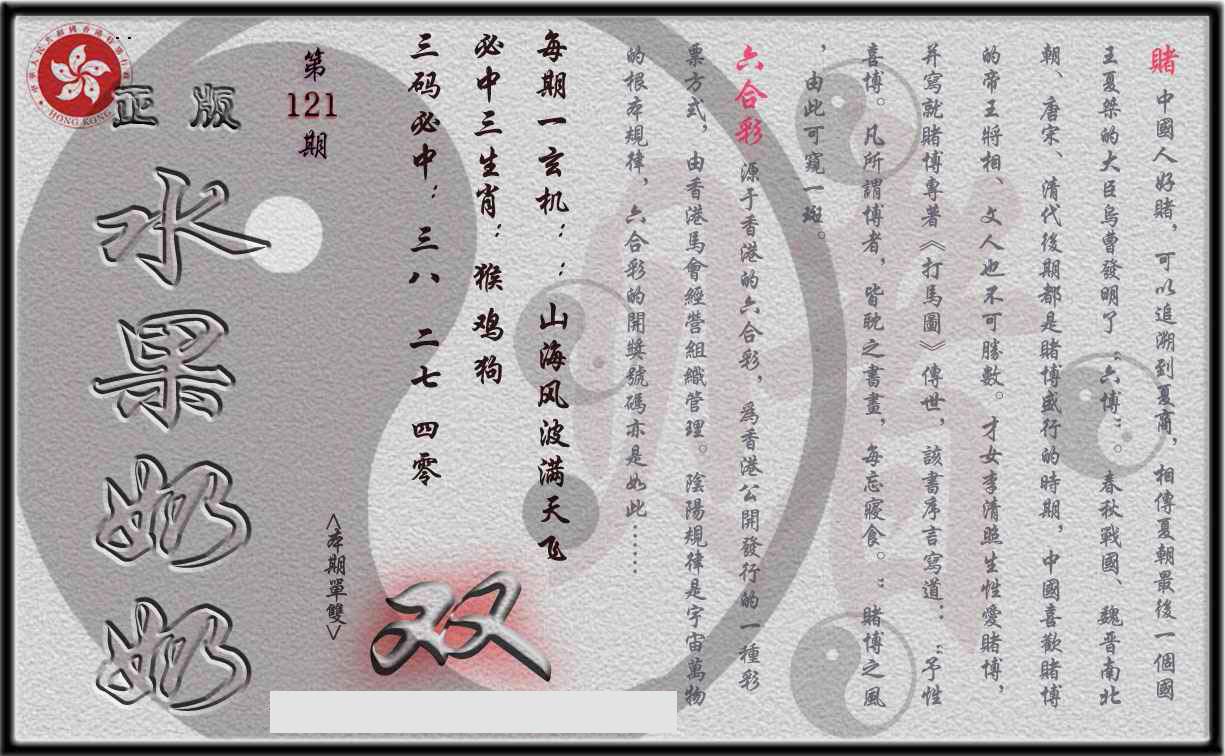 赌 中國人好賭，可以追溯到夏商，相傳夏朝最後一個國
王夏桀的大臣烏曹發明了“六博”。春秋戰國、魏晉南北
朝、唐宋、清代後期都是賭博盛行的時期，中國喜歡賭博
的帝王將相、文人也不可勝數。才女李清照生性愛賭博，
并寫就賭博專著《打馬圖》傳世，該書序言寫道：：“予性
喜博。凡所謂博者，皆耽之書畫，每忘寢食。”賭博之風
，由此可窺一斑。
六合彩 源于香港的六合彩，爲香港公開發行的一種彩
票方式，由香港馬會經營組織管理。陰陽規律是宇宙萬物
的根本規律，六合彩的開獎號碼亦是如此……
每期一玄机：：山海风波满天飞
必中三生肖：猴鸡狗
三码必中：三八 二七 四零
<本期單雙>
双
第
121
期
正版
水果奶奶
HONG KONG